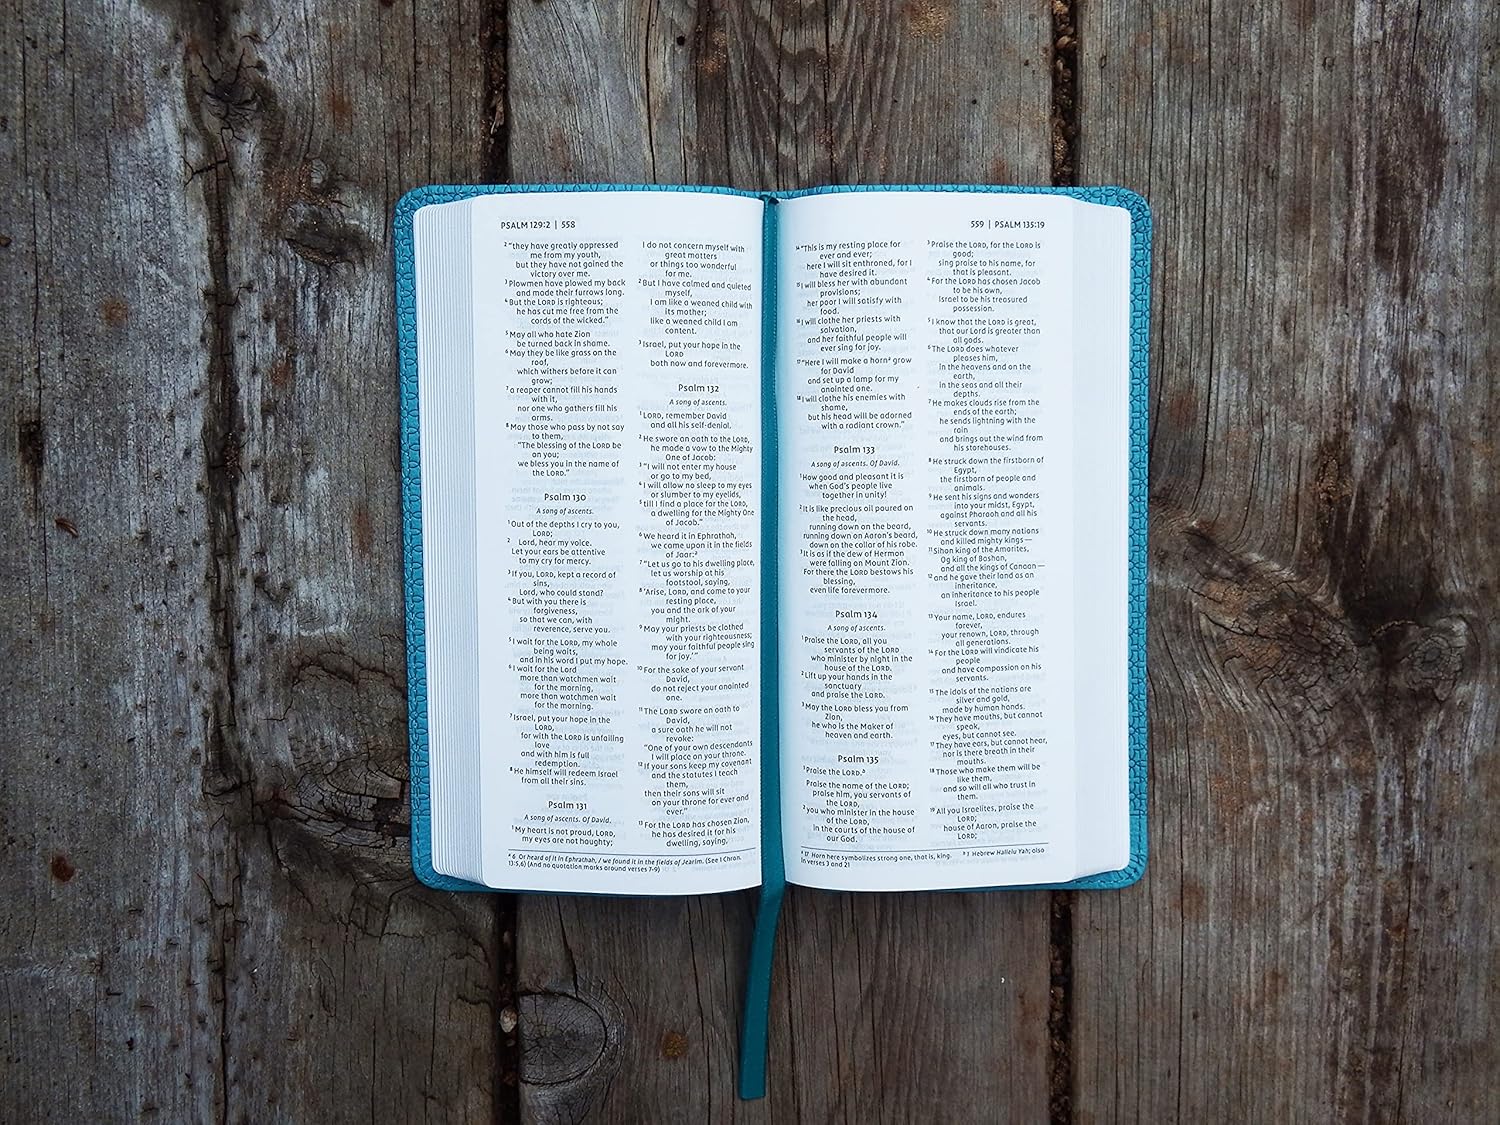 PSALM 129:2 | 558
2 "they have greatly oppressed
me from my youth,
but they have not gained the
victory over me.
3 Plowmen have plowed my back
and made their furrows long.
4 But the LORD is righteous;
he has cut me free from the
cords of the wicked."
5 May all who hate Zion
be turned back in shame.
6 May they be like grass on the
roof,
which withers before it can
grow;
7 a reaper cannot fill his hands
with it,
nor one who gathers fill his
arms.
8 May those who pass by not say
to them,
"The blessing of the LORD be
on you;
we bless you in the name of
the LORD."
Psalm 130
A song of ascents.
1 Out of the depths I cry to you,
LORD;
2 Lord, hear my voice.
Let your ears be attentive
to my cry for mercy.
3 If you, LORD, kept a record of
sins,
Lord, who could stand?
4 But with you there is
forgiveness,
so that we can, with
reverence, serve you.
5 I wait for the LORD, my whole
being waits,
and in his word I put my hope.
6 I wait for the Lord
more than watchmen wait
for the morning,
more than watchmen wait
for the morning.
7 Israel, put your hope in the
LORD,
for with the LORD is unfailing
love
and with him is full
redemption.
8 He himself will redeem Israel
from all their sins.
Psalm 131
A song of ascents. Of David.
1 My heart is not proud, LORD,
my eyes are not haughty;
I do not concern myself with
great matters
or things too wonderful
for me.
2 But I have calmed and quieted
myself,
I am like a weaned child with
its mother;
like a weaned child I am
content.
3 Israel, put your hope in the
LORD
both now and forevermore.
Psalm 132
A song of ascents.
1 LORD, remember David
and all his self-denial.
2 He swore an oath to the LORD,
he made a vow to the Mighty
One of Jacob:
3 "I will not enter my house
or go to my bed,
4 I will allow no sleep to my eyes
or slumber to my eyelids,
5 till I find a place for the LORD,
a dwelling for the Mighty One
of Jacob."
6 We heard it in Ephrathah,
we came upon it in the fields
of Jaar:a
7 "Let us go to his dwelling place,
let us worship at his
footstool, saying,
8 'Arise, LORD, and come to your
resting place,
you and the ark of your
might.
9 May your priests be clothed
with your righteousness;
may your faithful people sing
for joy.'"
10 For the sake of your servant
David,
do not reject your anointed
one.
11 The LORD swore an oath to
David,
a sure oath he will not
revoke:
"One of your own descendants
I will place on your throne.
12 If your sons keep my covenant
and the statutes I teach
them,
then their sons will sit
on your throne for ever and
ever."
13 For the LORD has chosen Zion,
he has desired it for his
dwelling, saying,
a 6 Or heard of it in Ephrathah, / we found it in the fields of Jearim. (See 1 Chron.
13:5,6) (And no quotation marks around verses 7-9)
559 | PSALM 135:19
14 "This is my resting place for
ever and ever;
here I will sit enthroned, for I
have desired it.
15 I will bless her with abundant
provisions;
her poor I will satisfy with
food.
16 I will clothe her priests with
salvation,
and her faithful people will
ever sing for joy.
17 "Here I will make a horna grow
for David
and set up a lamp for my
anointed one.
18 I will clothe his enemies with
shame,
but his head will be adorned
with a radiant crown."
Psalm 133
A song of ascents. Of David.
1 How good and pleasant it is
when God's people live
together in unity!
2 It is like precious oil poured on
the head,
running down on the beard,
running down on Aaron's beard,
down on the collar of his robe.
3 It is as if the dew of Hermon
were falling on Mount Zion.
For there the LORD bestows his
blessing,
even life forevermore.
Psalm 134
A song of ascents.
1 Praise the LORD, all you
servants of the LORD
who minister by night in the
house of the LORD.
2 Lift up your hands in the
sanctuary
and praise the LORD.
3 May the LORD bless you from
Zion,
he who is the Maker of
heaven and earth.
Psalm 135
1 Praise the LORD.b
Praise the name of the LORD;
praise him, you servants of
the LORD,
2 you who minister in the house
of the LORD,
in the courts of the house of
our God.
3 Praise the LORD, for the LORD is
good;
sing praise to his name, for
that is pleasant.
4 For the LORD has chosen Jacob
to be his own,
Israel to be his treasured
possession.
5 I know that the LORD is great,
that our Lord is greater than
all gods.
6 The LORD does whatever
pleases him,
in the heavens and on the
earth,
in the seas and all their
depths.
7 He makes clouds rise from the
ends of the earth;
he sends lightning with the
rain
and brings out the wind from
his storehouses.
8 He struck down the firstborn of
Egypt,
the firstborn of people and
animals.
9 He sent his signs and wonders
into your midst, Egypt,
against Pharaoh and all his
servants.
10 He struck down many nations
and killed mighty kings—
11 Sihon king of the Amorites,
Og king of Bashan,
and all the kings of Canaan—
12 and he gave their land as an
inheritance,
an inheritance to his people
Israel.
13 Your name, LORD, endures
forever,
your renown, LORD, through
all generations.
14 For the LORD will vindicate his
people
and have compassion on his
servants.
15 The idols of the nations are
silver and gold,
made by human hands.
16 They have mouths, but cannot
speak,
eyes, but cannot see.
17 They have ears, but cannot hear,
nor is there breath in their
mouths.
18 Those who make them will be
like them,
and so will all who trust in
them.
19 All you Israelites, praise the
LORD;
house of Aaron, praise the
LORD;
a 17 Horn here symbolizes strong one, that is, king. b 1 Hebrew Hallelu Yah; also
in verses 3 and 21